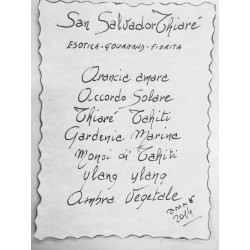 San Salvador Thiaré
ESOTICA - GOURMAND - FIORITA
Arancia amara
Accordo Solare
Thiaré Tahiti
Gardenia Marina
Monoi di Tahiti
ylang ylang
Ambra Vegetale
2014